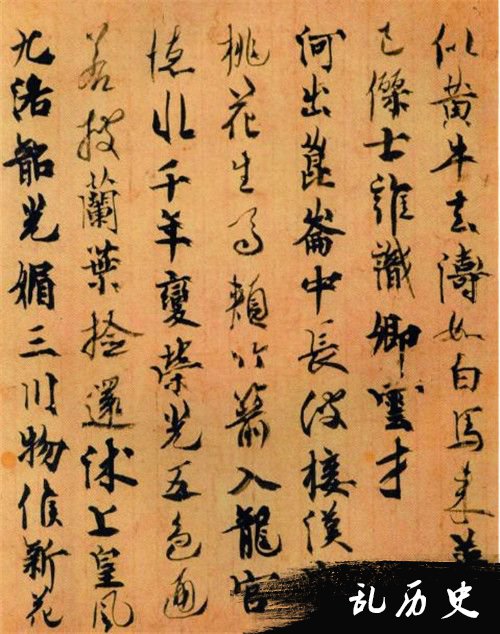 似黄牛去濤如白馬来
已傑士誰識卿雲才
河出崑崙中長波接漢
桃花生馬頬竹箭入龍宮
德水千年變榮光五色通
若披蘭葉撿還沐上皇風
九洛韶光媚三川物候新花
乱历史